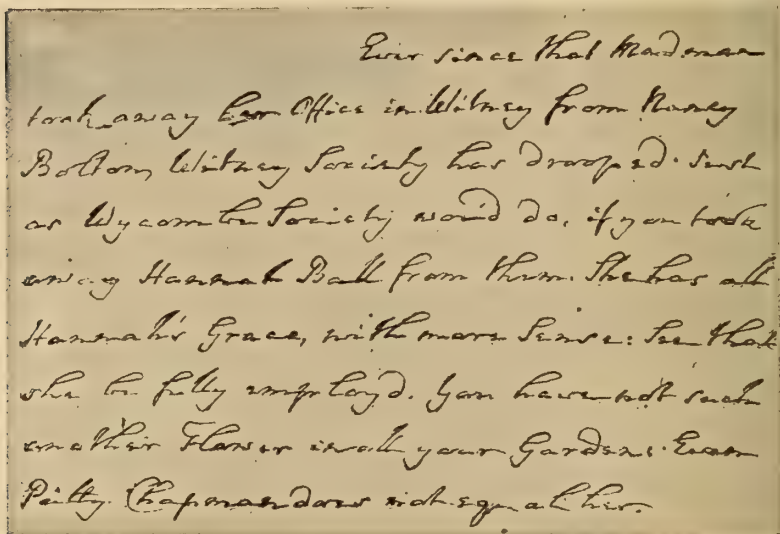 Ever since that Madman
took away her Office in Witney from Nancy
Bolton, Witney Society has drooped. Just
as Wycombe Society wou'd do, if you took
away Hannah Ball from them. She has all
Hannah's Grace, with more Sense: See that
she be fully employ'd. You have not such
another Flower in all your Gardens. Even
Patty Chapman does not equal her.